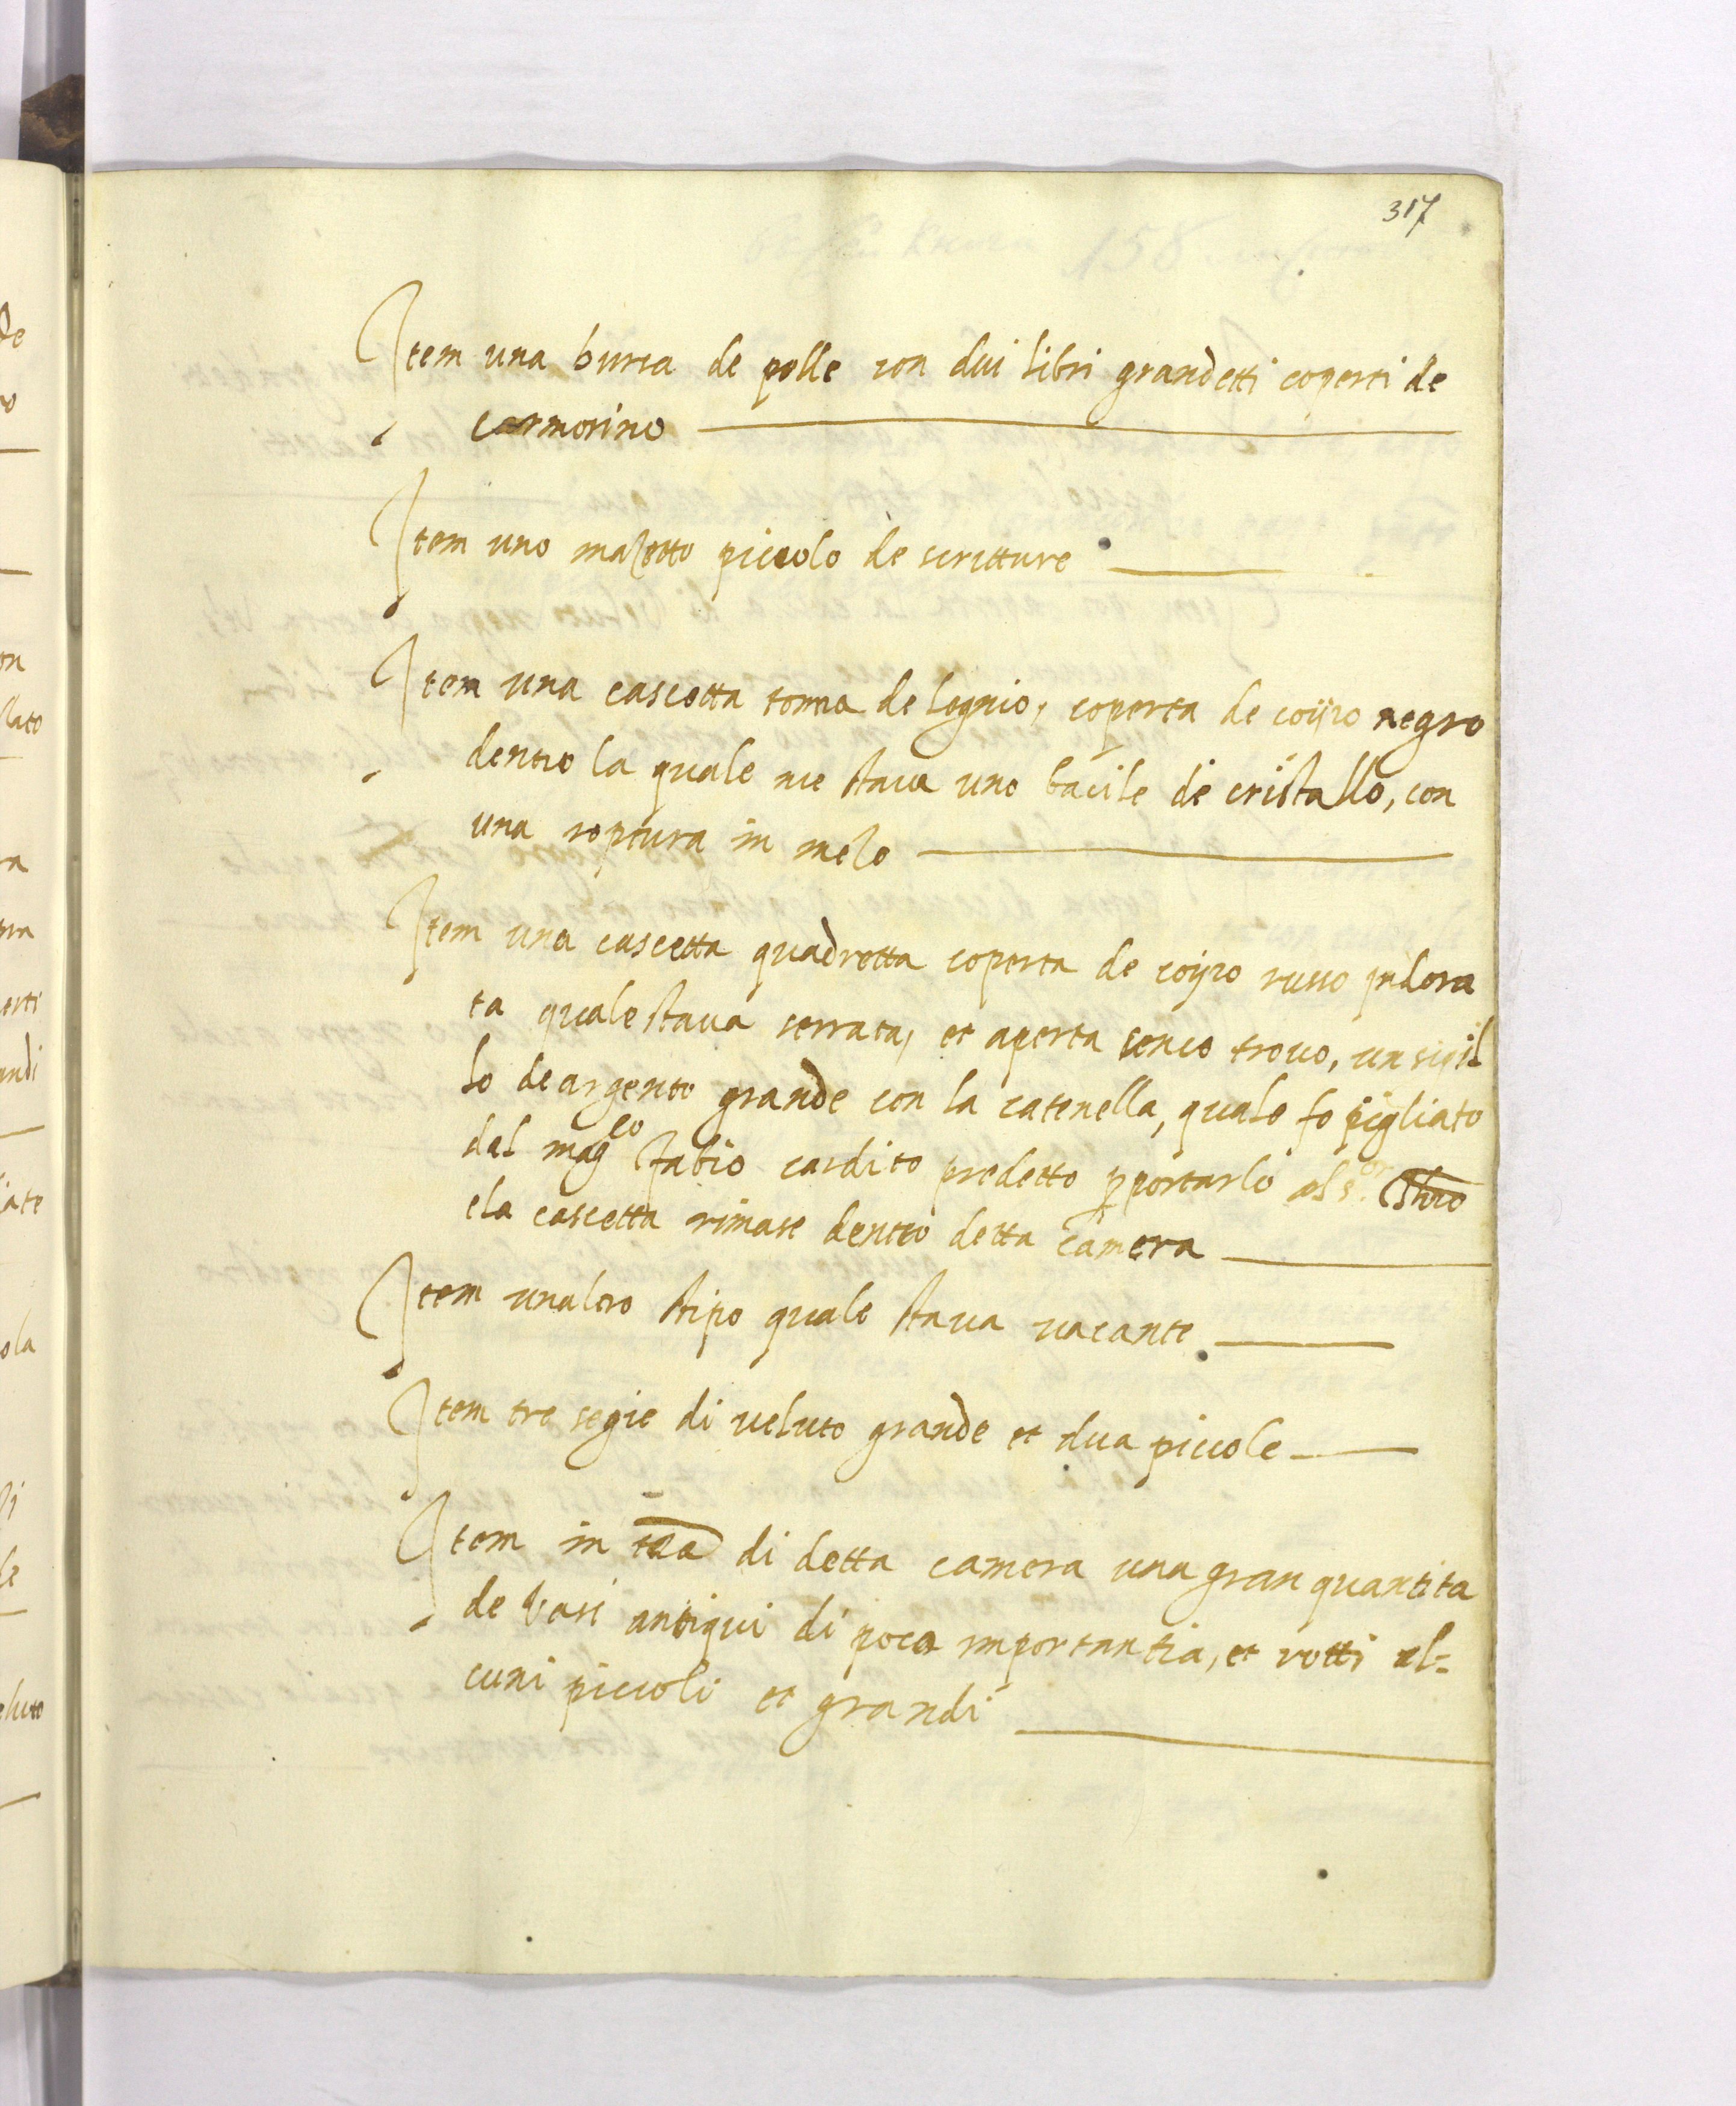 317
Item una bursa de pelle con dui libri grandetti coperti de
carmosino
Item uno mazetto piccolo de scritture
Item una cascetta tonna de legnio, coperta de coijro negro
dentro la quale nce stava uno bacile de cristallo, con
una roptura in mezo
Item una cascetta quadretta coperta de coijro russo indora
ta quale stava serrata, et aperta senco trovo, un sigil
lo de argento grande con la catenella, quale fo pigliato
dal mag.co Fabio cardito predetto p portarlo al s.or
ela cascetta rimase dentro detta camera
Item unaltro stipo quale stava vacante
Item tre segie di veluto grande et dua piccole
Item in tra di detta camera una gran quantita
de vasi antiqui di poca importantia, et rotti al=
cuni piccoli et grandi